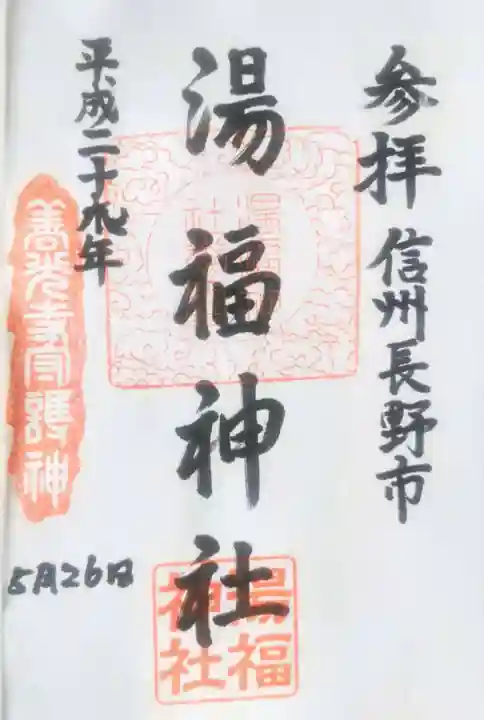 参拝 信州長野市
湯福神社
平成二十九年
5月26日
善光寺守護神
湯福
神社
湯福
神社